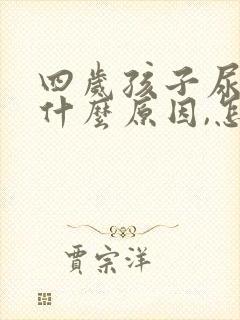 四歲孩子尿
什麼原因,怎
賈宗洋